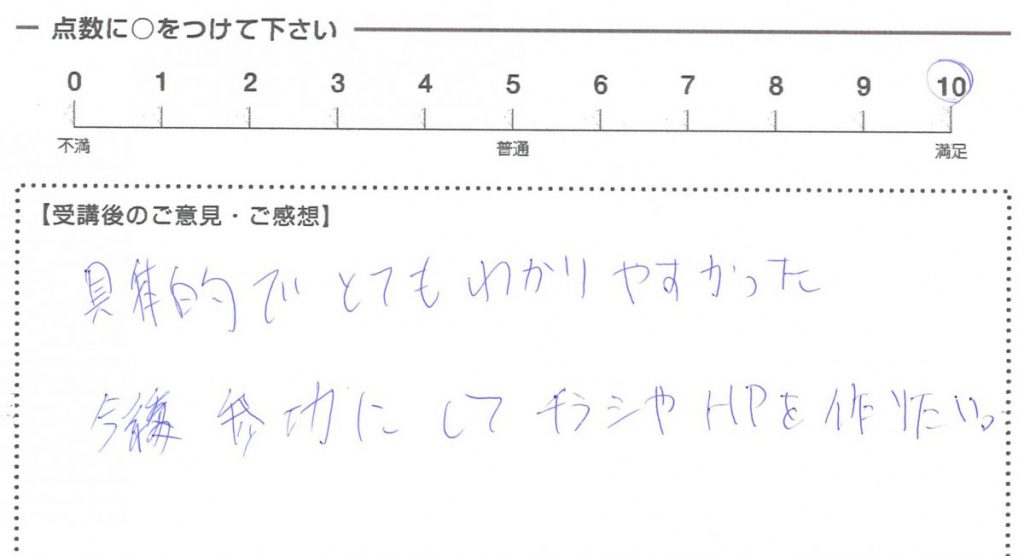 点数に○をつけて下さい
0 1 2 3 4 5 6 7 8 9 10
不満 普通 満足
【受講後のご意見・ご感想】
具体的で とても わかりやすかった
今後 参功に して チラシや HPを 作りたい。